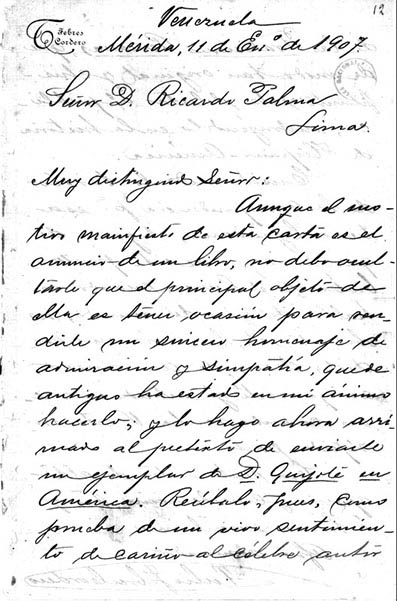 12
Febres
Cordero
Venezuela
Mérida, 11 de Enº de 1907.
Señor D. Ricardo Palma
Lima.
Muy distinguido Señor:
Aunque el mo-
tivo manifiesto de esta carta es el
anuncio de un libro, no debo ocul-
tarle que el principal objeto de
ella es tener ocasión para ren-
dirle un sincero homenaje de
admiración y simpatía, que de
antiguo ha estado en mi ánimo
hacerlo, y lo hago ahora arri-
mado al pretexto de enviarle
un ejemplar de D. Quijote en
América. Recíbalo, pues, como
prueba de un vivo sentimien-
to de cariño al célebre autor